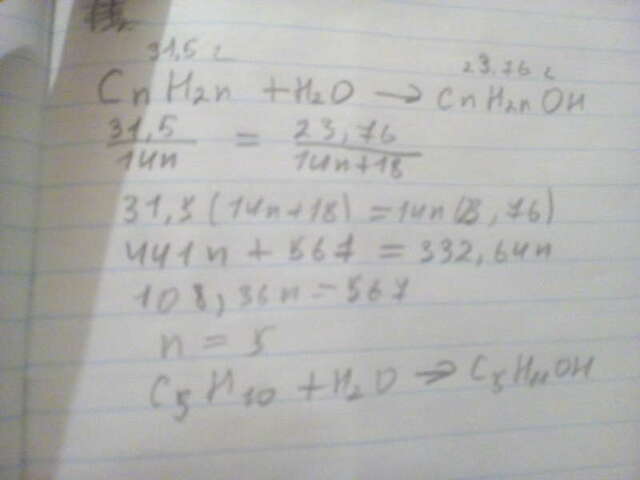 31,5 г 23,76 г
CnH2n + H2O → CnH2nOH
31,5/14n = 23,76/14n+18
31,5(14n+18) = 14n(23,76)
441n + 567 = 332,64n
108,36n = 567
n = 5
C5H10 + H2O → C5H11OH